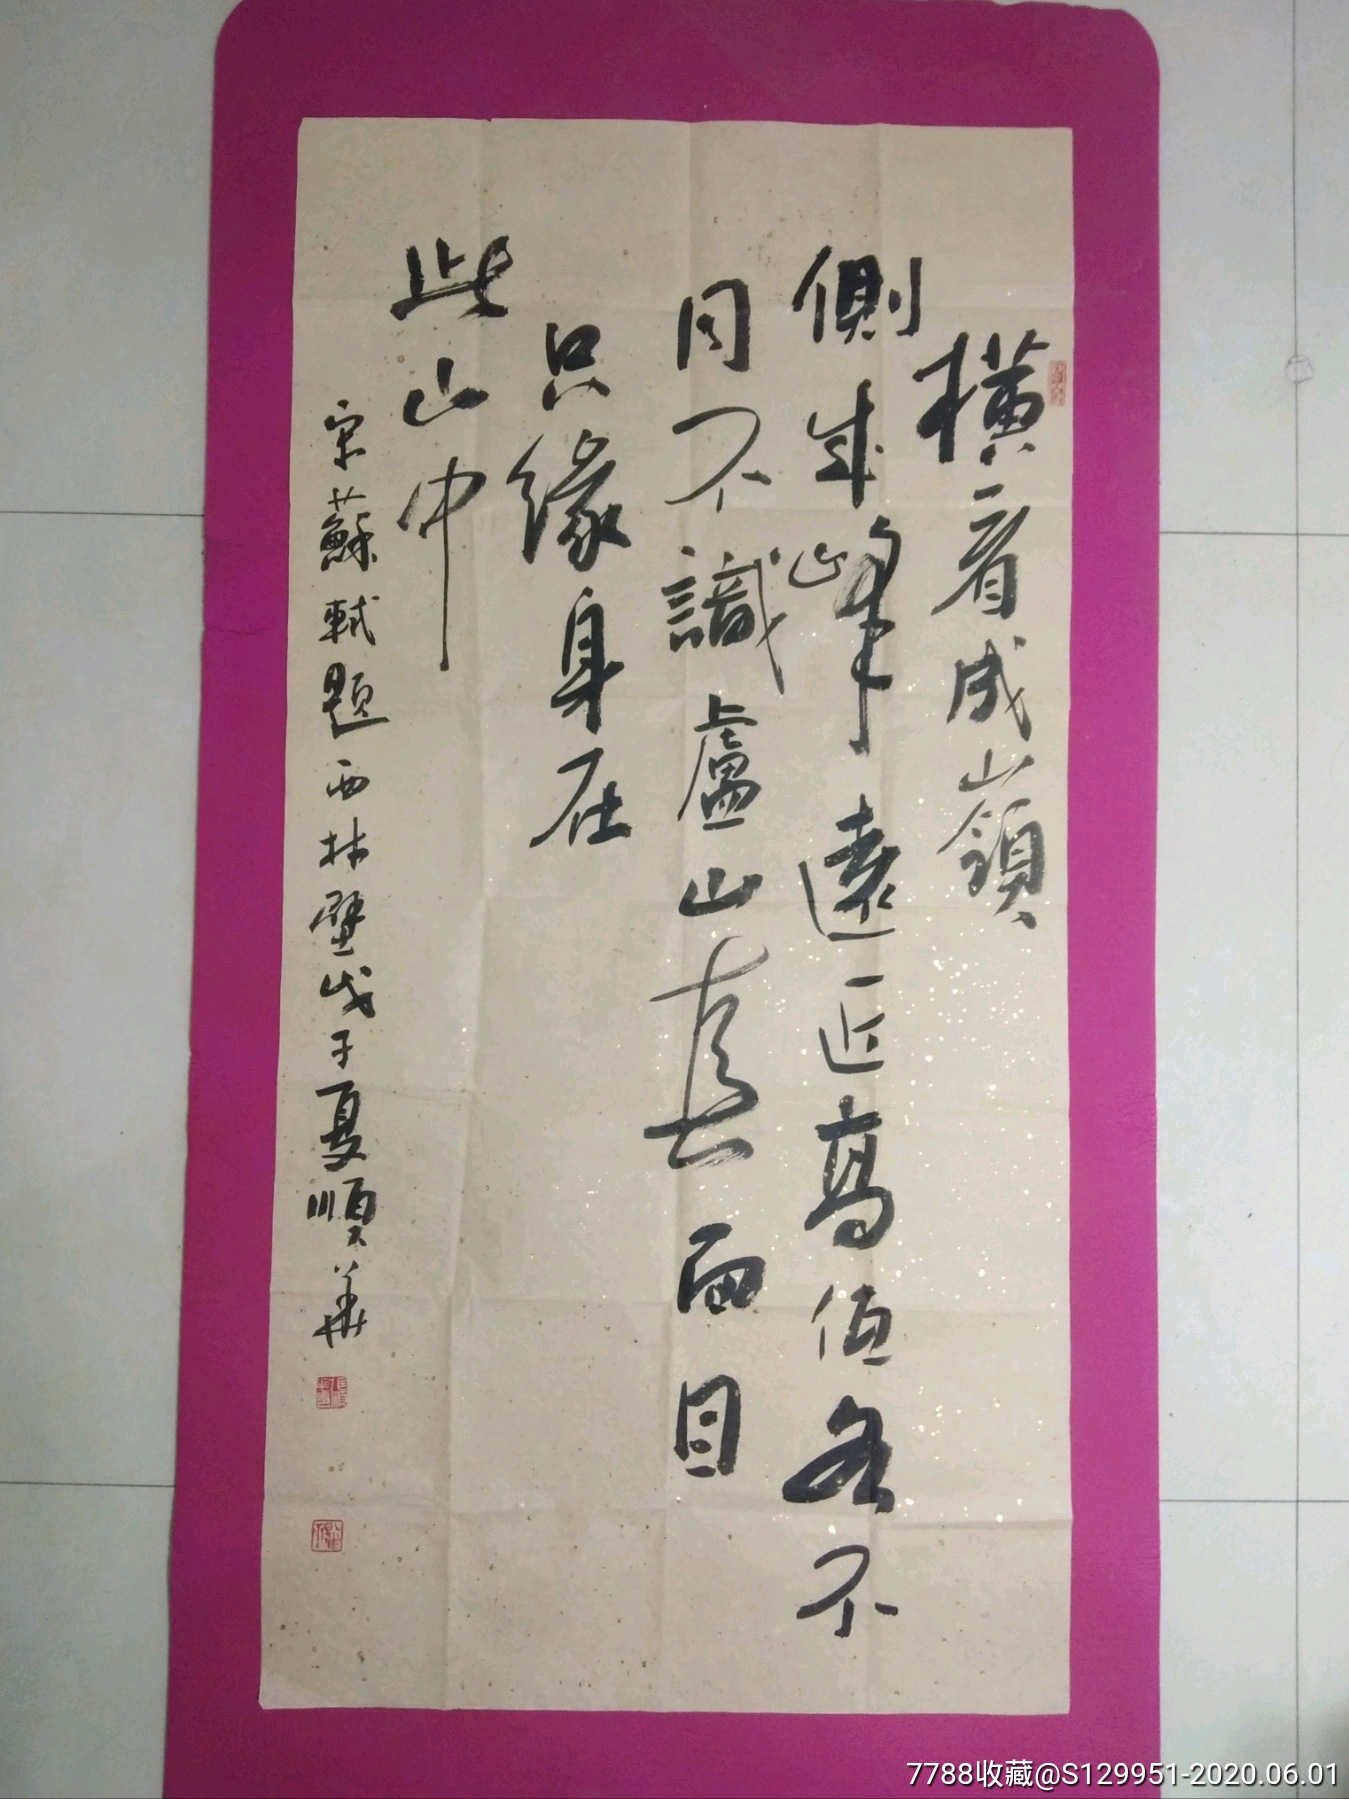 橫看成嶺
側成峰遠近高低各不
同不識盧山真面目
只緣身在
此山中
宋蘇軾題西林壁戊子夏順華
7788收藏@S129951-2020.06.01